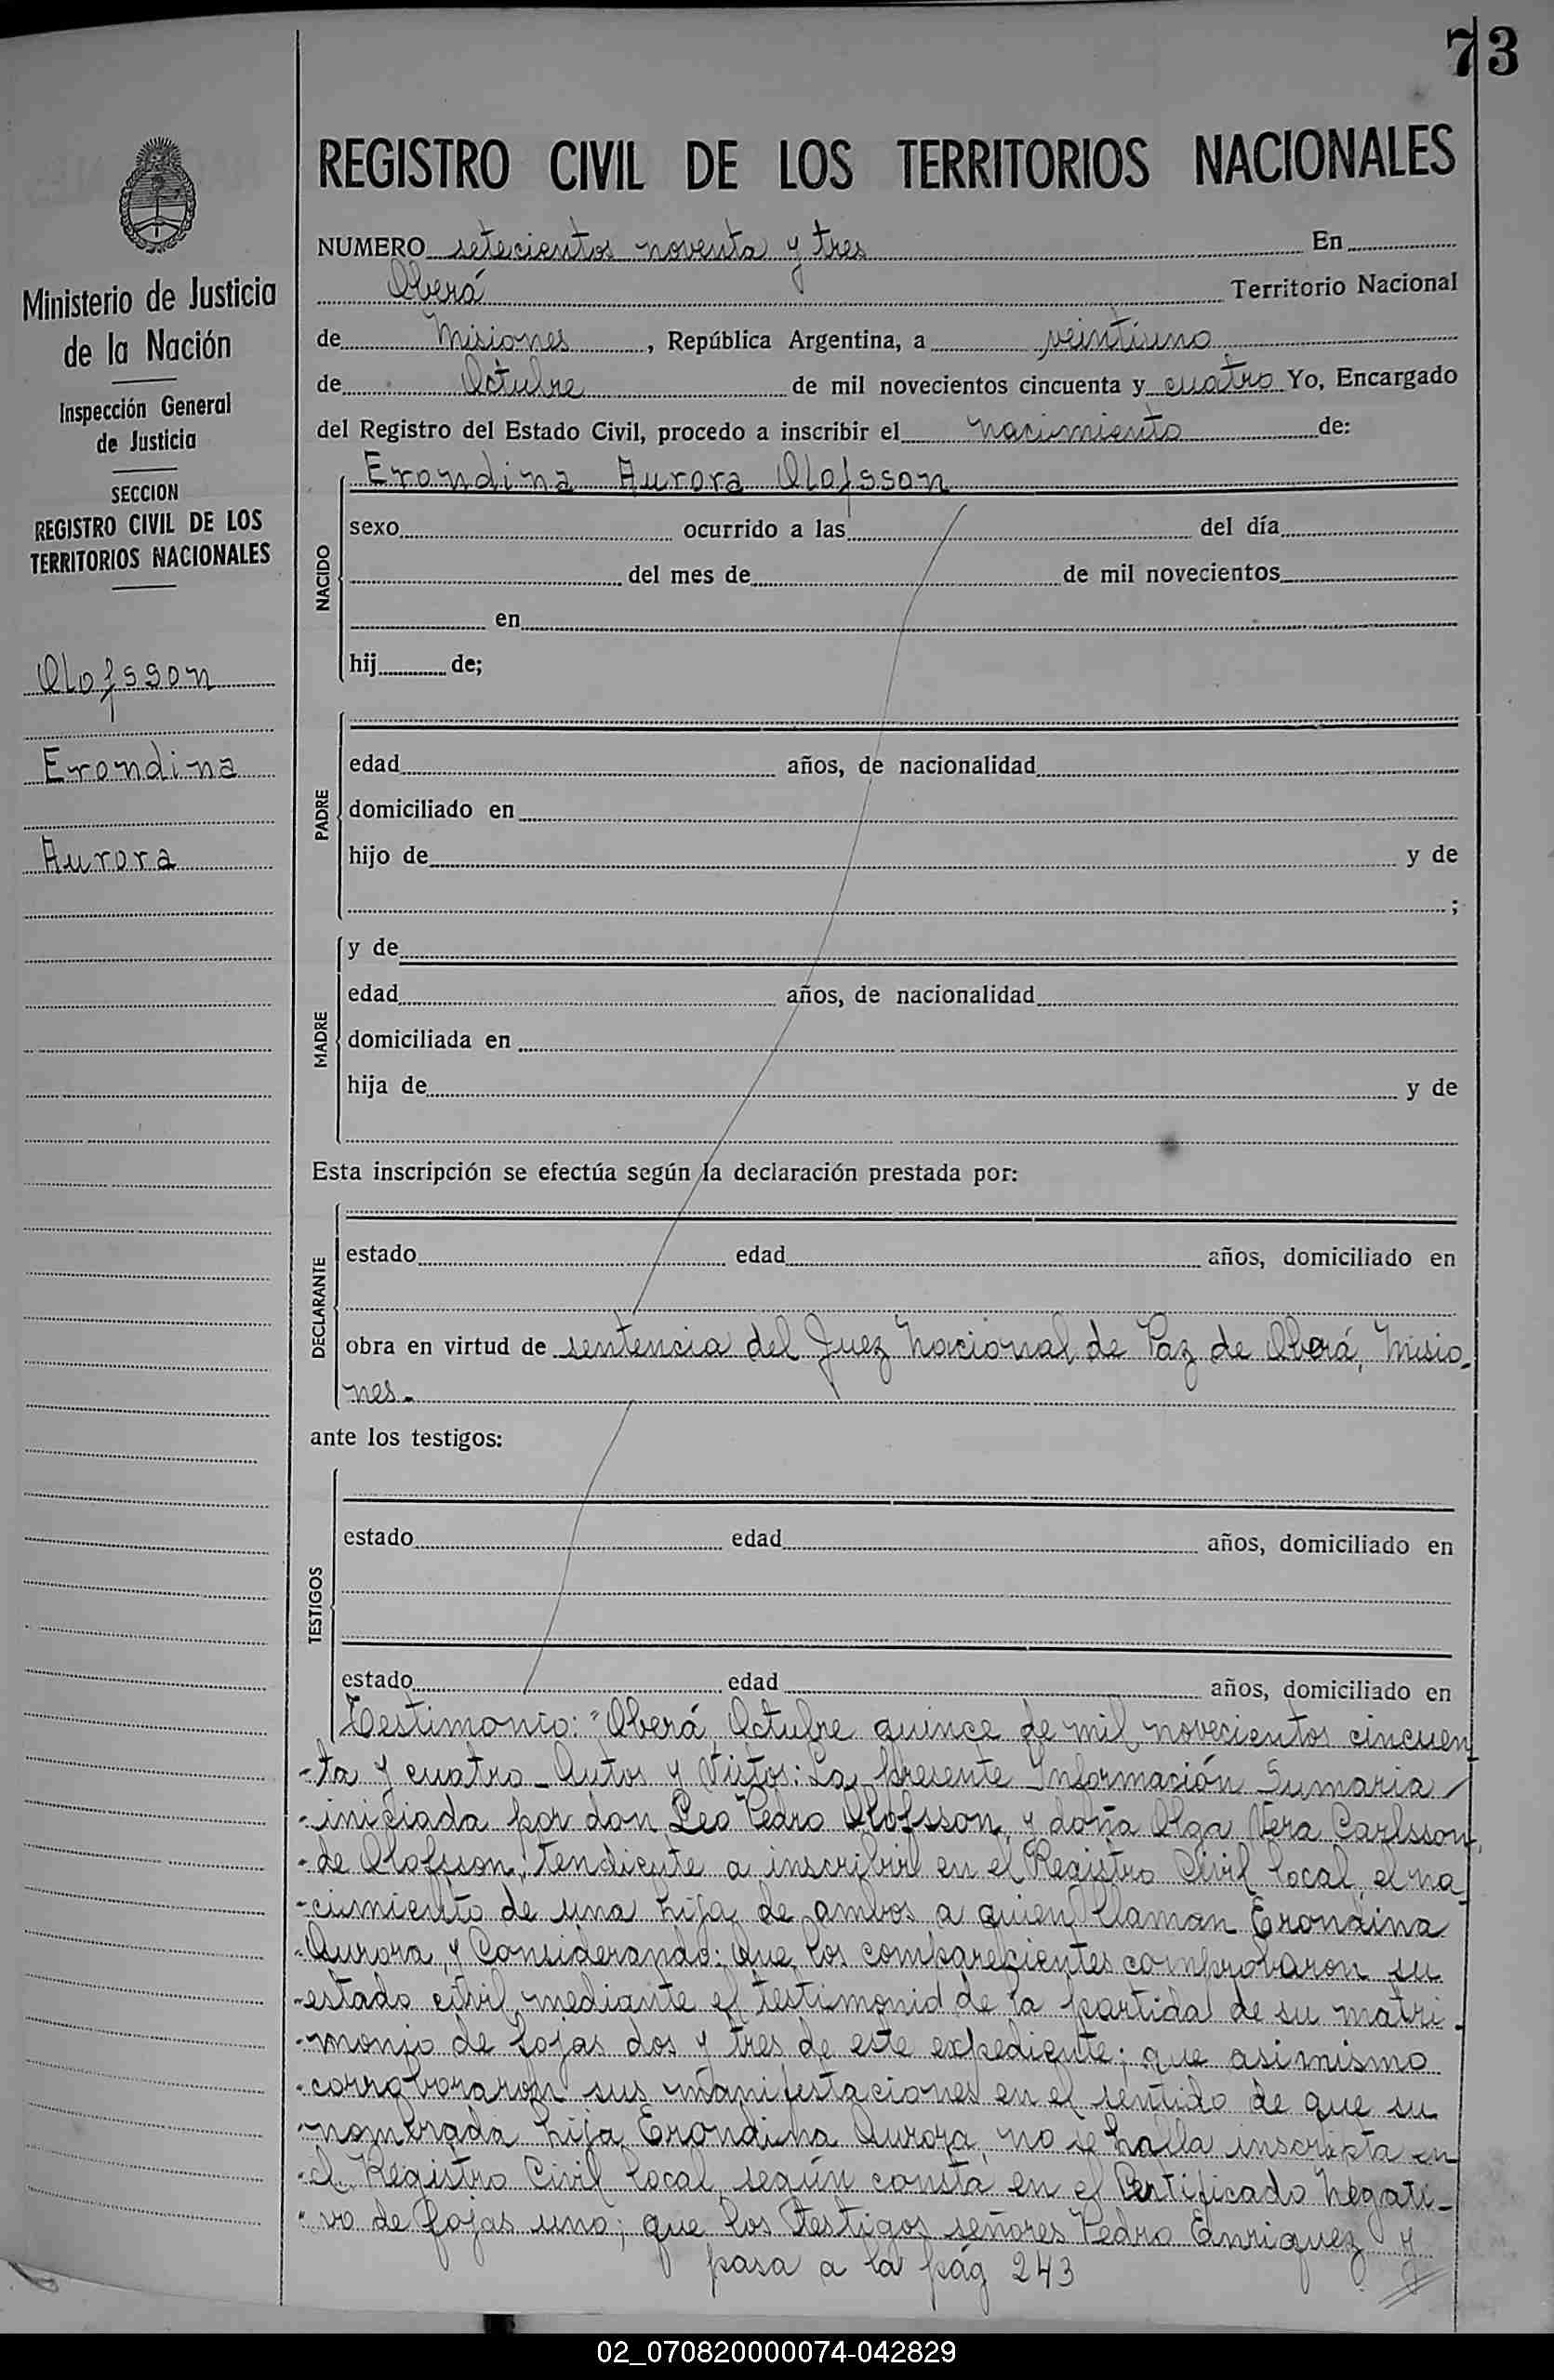 73
REGISTRO CIVIL DE LOS TERRITORIOS NACIONALES
Ministerio de Justicia
de la Nación
Inspección General
de Justicia
SECCION
REGISTRO CIVIL DE LOS
TERRITORIOS NACIONALES
Olofsson
Erondina
Aurora
NUMERO setecientos noventa y tres En
Oberá Territorio Nacional
de Misiones, República Argentina, a veintiuno
de Octubre de mil novecientos cincuenta y cuatro Yo, Encargado
del Registro del Estado Civil, procedo a inscribir el nacimiento de:
NACIDO
Erondina Aurora Olofsson
sexo ocurrido a las del día
del mes de de mil novecientos
en
hij de;
PADRE
edad años, de nacionalidad
domiciliado en
hijo de y de
;
MADRE
y de
edad años, de nacionalidad
domiciliada en
hija de y de
Esta inscripción se efectúa según la declaración prestada por:
DECLARANTE
estado edad años, domiciliado en
obra en virtud de sentencia del Juez Nacional de Paz de Oberá, Misio-
nes.-
ante los testigos:
TESTIGOS
estado edad años, domiciliado en
estado edad años, domiciliado en
Testimonio: "Oberá, Octubre quince de mil novecientos cincuen
-ta y cuatro- Autos y Vistos: La presente Información Sumaria
-iniciada por don Leo Pedro Olofsson, y doña Olga Vera Carlsson,
-de Olofsson, tendiente a inscribir en el Registro Civil local, el na
-cimiento de una hija de ambos a quien llaman Erondina
-Aurora, y Considerando: Que los comparecientes comprobaron su
-estado civil mediante el testimonio de la partida de su matri-
-monio de fojas dos y tres de este expediente; que asimismo
-corroboraron sus manifestaciones en el sentido de que su
-nombrada hija Erondina Aurora, no se halla inscripta en
-el Registro Civil local, según consta en el Certificado Negati-
-vo de fojas uno; que los testigos señores Pedro Enriquez y
pasa a la pág 243
02_070820000074-042829